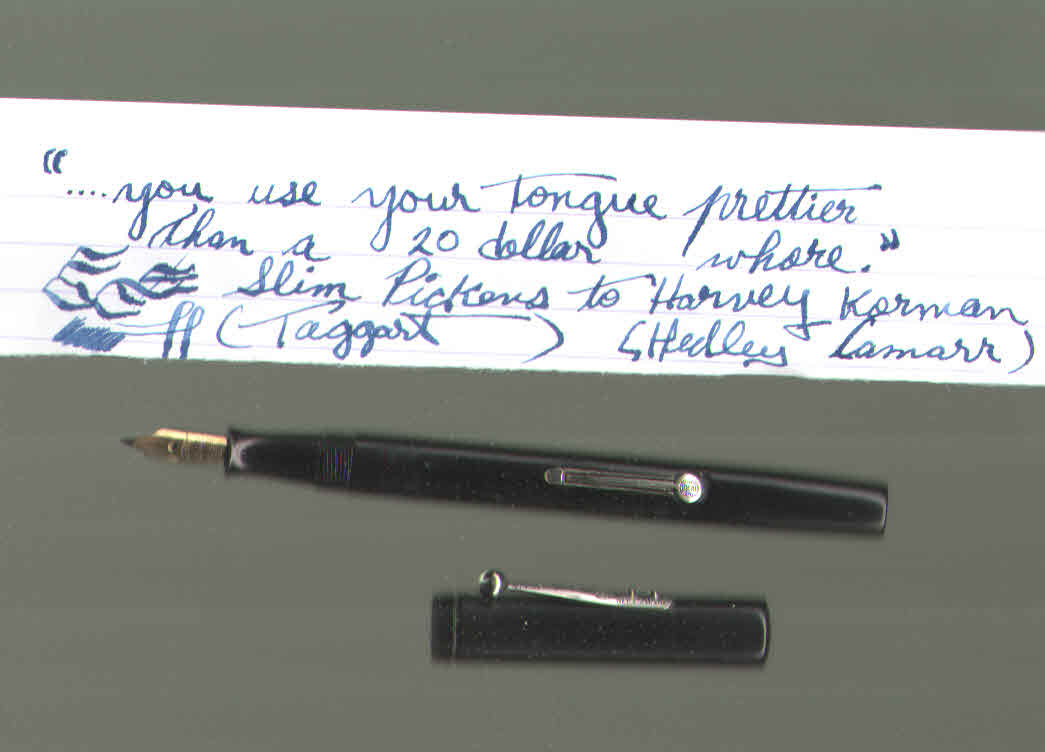 "....you use your tongue prettier
than a 20 dollar whore."
Slim Pickens to Harvey Korman
(Taggart) (Hedley Lamarr)